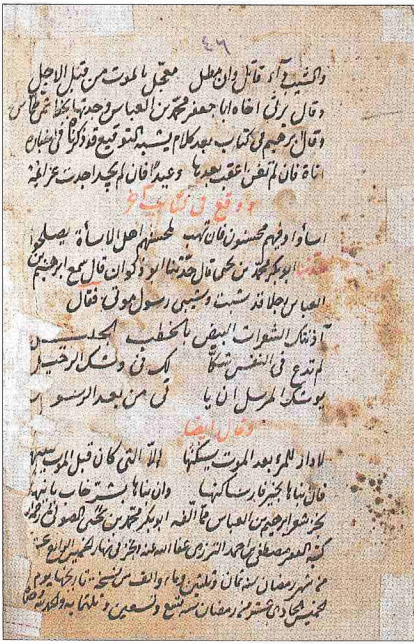 ٤٦
والشيب داء قاتل وان مطل معجّل بالموت من قبل الاجل
وقال يرثى اخاه ابا جعفر محمد بن العباس وجدتها بخط
وقال ابرهيم فى كتاب بعد كلام يشبه التوقيع قد ذكرنا فى
اناة فان لم تغن اعقب بعدها وعيدًا فان لم يجد اجدت عزائمه
ووقع فى كتاب آخر
اساؤا وفيهم محسنون فان تهب لمحسنهم اهل الاساءة يصلحوا
حدثنا ابو بكر محمد بن يحيى قال حدثنا ابو ذكوان قال سمع ابرهيم بن
العباس رجلا قد شبت وشيبى رسول موتى فقال
آذنتك الشعرات البيض بالخطب الجليل
لم تدع فى النفس شكّا لك فى وشك الرحيل
يوشك المرسل ان يا تى من بعد الرسول
وقال ايضا
لا دار للمرء بعد الموت يسكنها الاّ التى كان قبل الموت يبنيها
فان بناها بخير فاز ساكنها وان بناها بشر خاب بانيها
نجز شعر ابرهيم بن العباس مما الّفه ابو بكر محمد بن يحيى الصولى
كتبه الفقير مصطفى بن احمد عفا الله عنه فى نهار الخميس الرابع عشر
من شهر رمضان سنة ثمان وثلثين ومايه والف من نسخة تاريخها يوم
الخميس لحادى عشر من رمضان سنة تسع وتسعين وثلثمايه